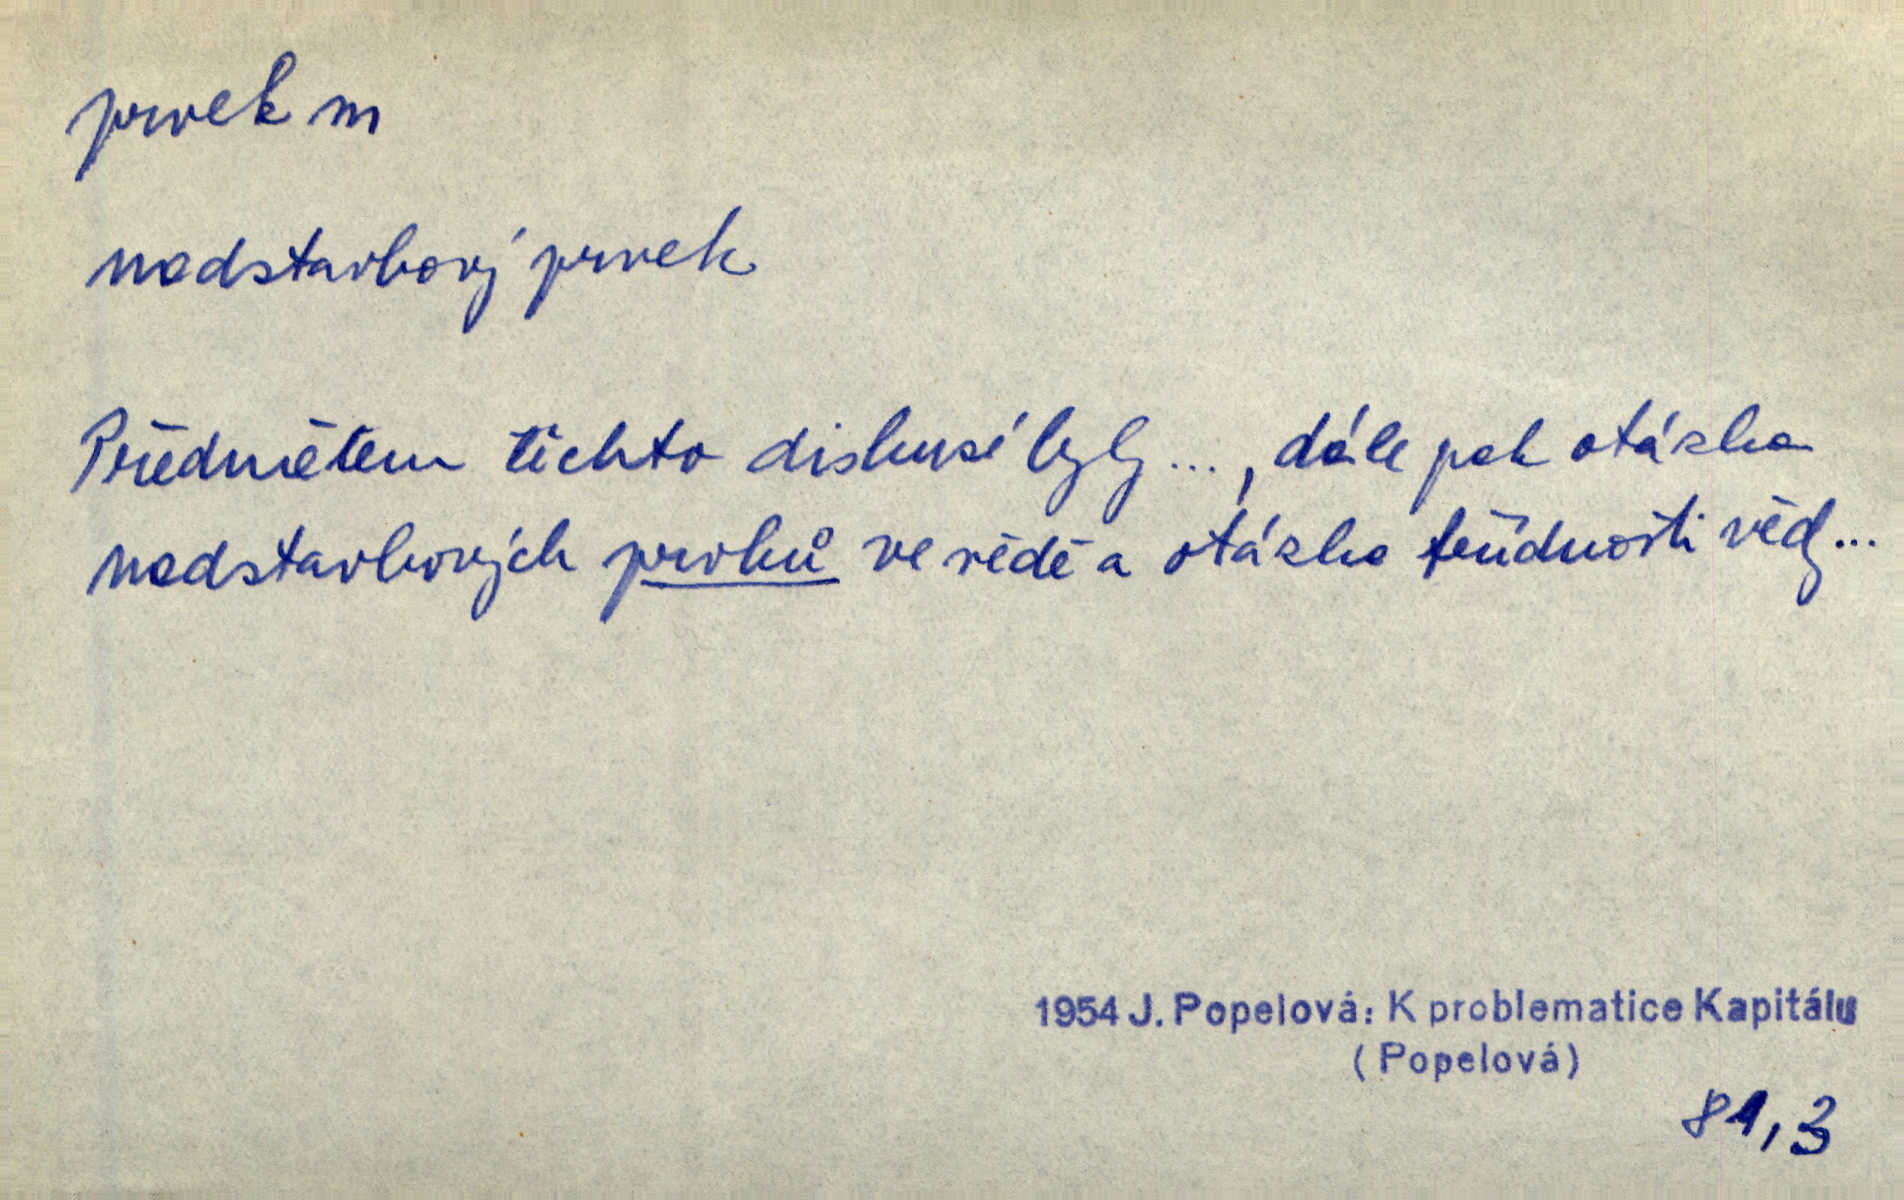 prvek m
nadstavbový prvek
Předmětem těchto diskusí byly ..., dále pak otázka
nadstavbových prvků ve vědě a otázka třídnosti vědy ...
1954 J. Popelová: K problematice Kapitálu
(Popelová)
81,3